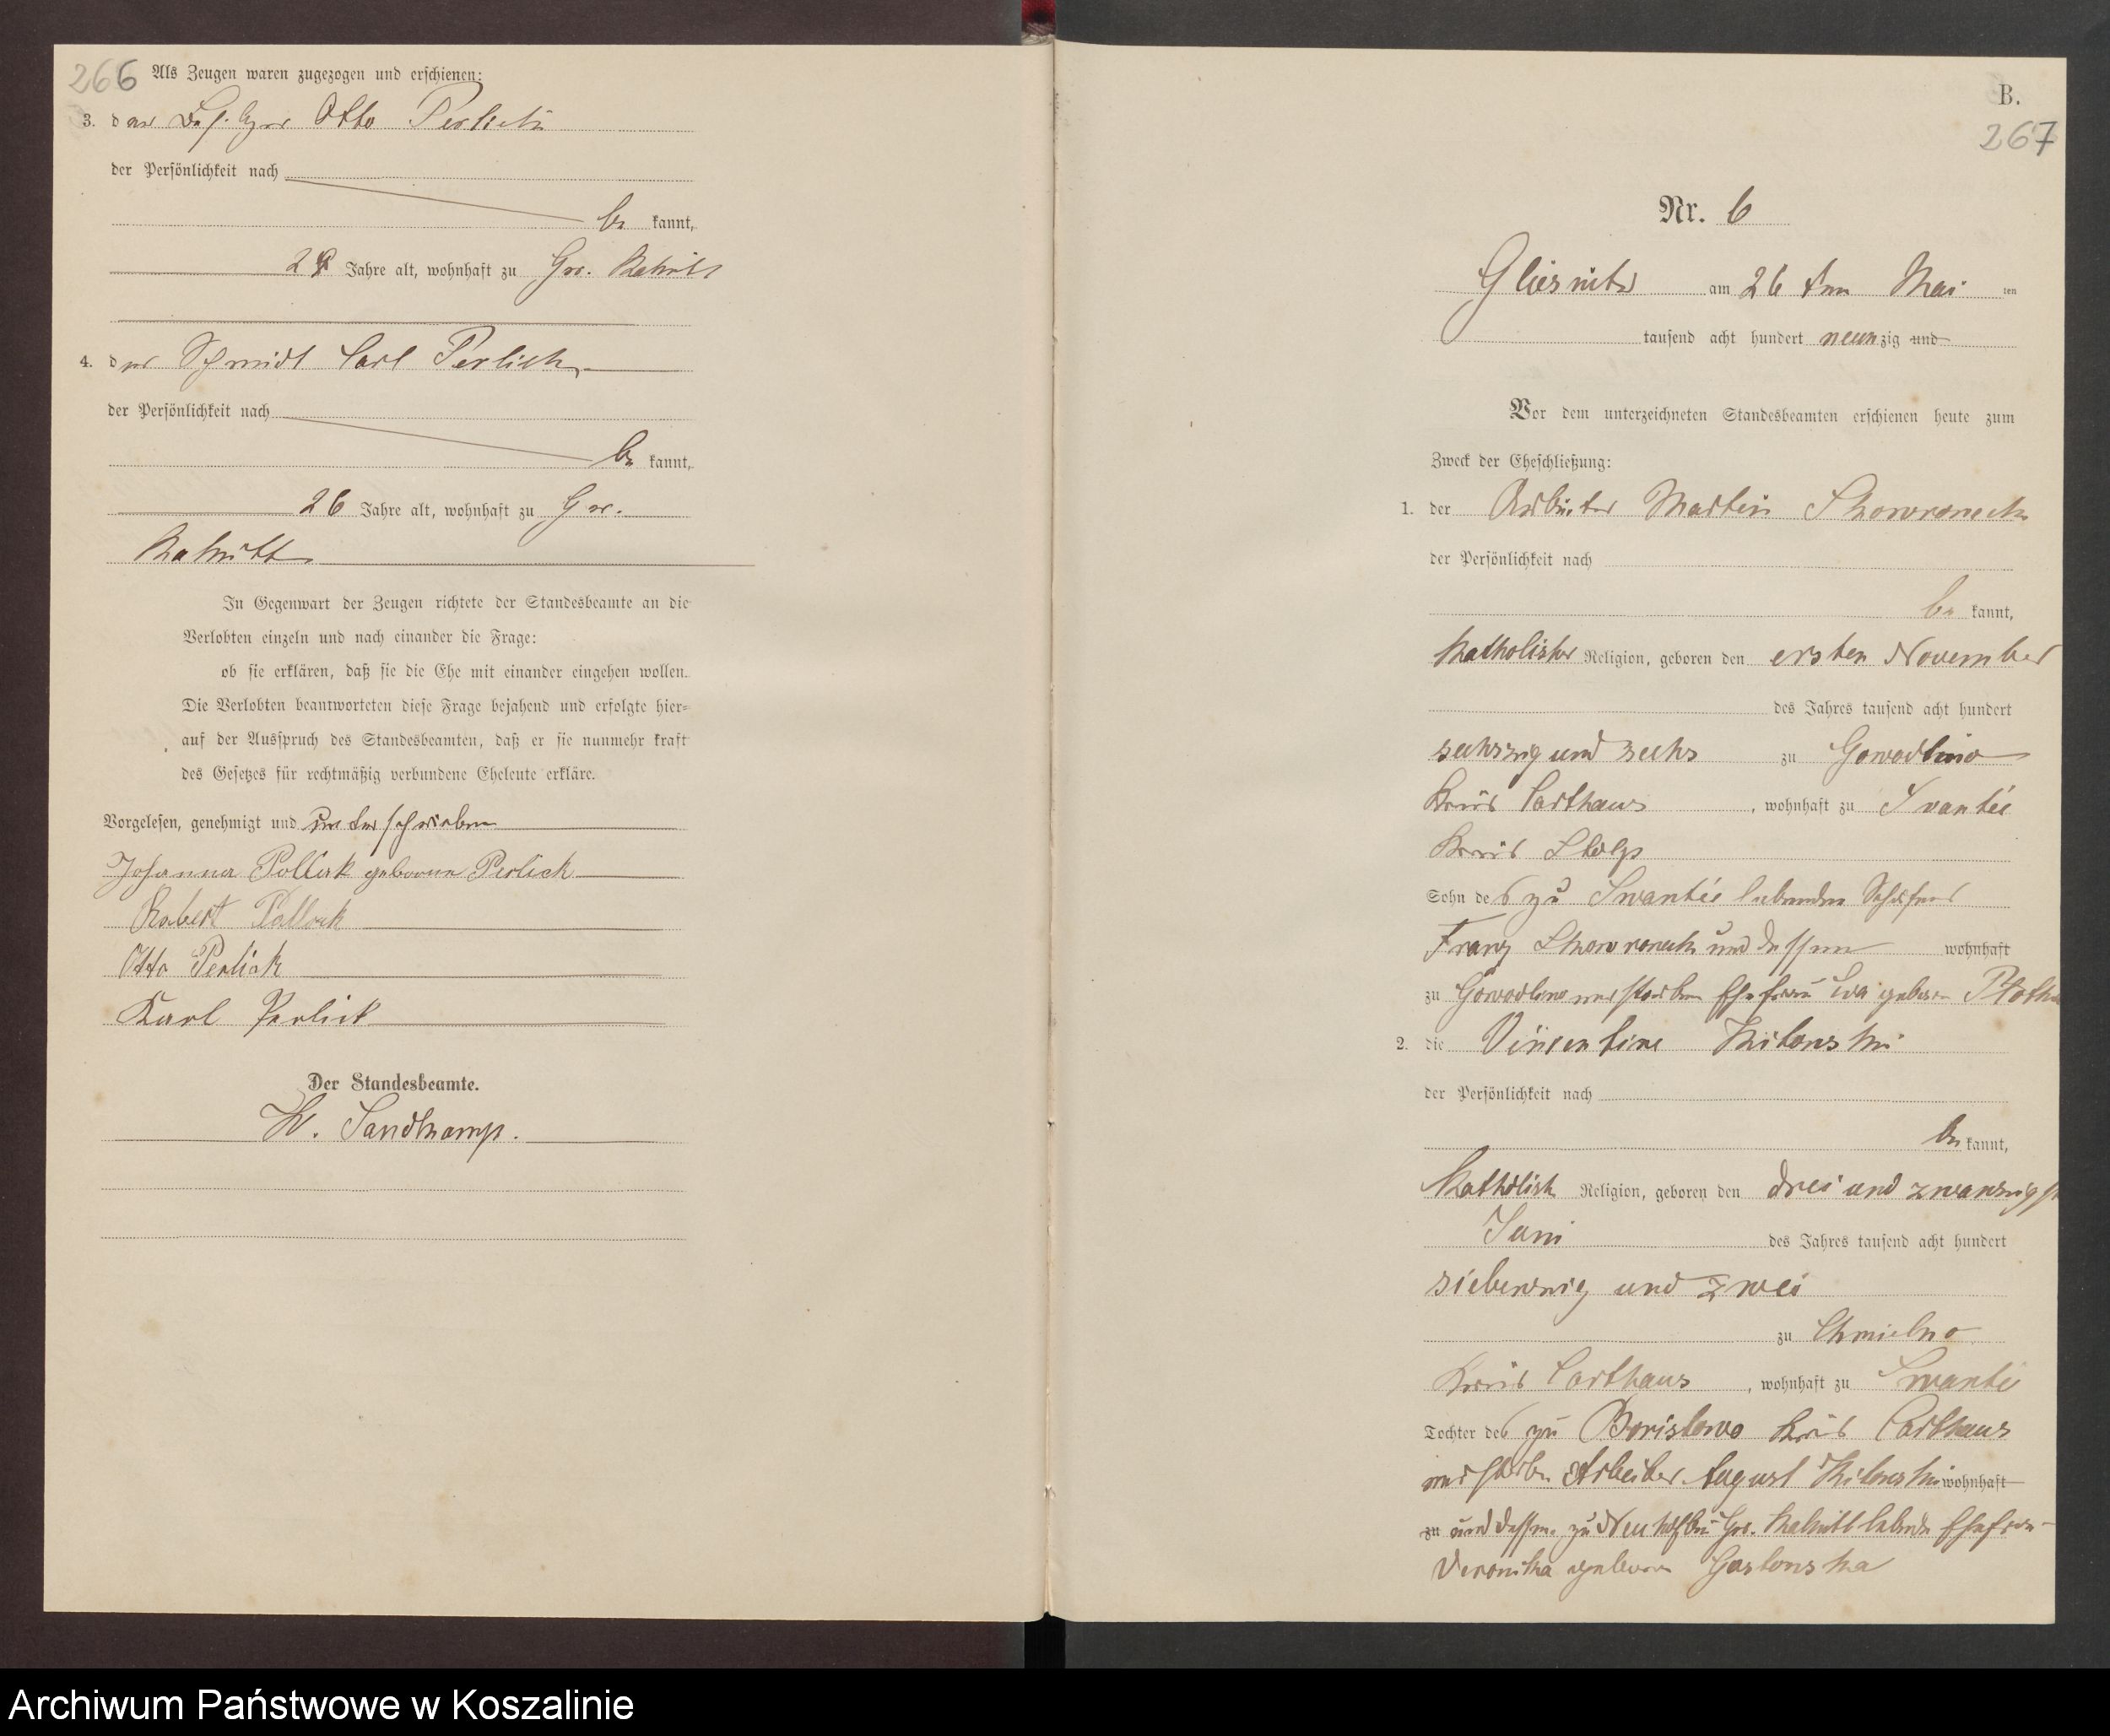 266 Als Zeugen waren zugezogen und erschienen:
3. der Otto Perlick
der Persönlichkeit nach
be kannt,
Jahre alt, wohnhaft zu Gr. Rakitt
4. der Schmidt Carl Perlick
der Persönlichkeit nach
be kannt,
26 Jahre alt, wohnhaft zu Gr.
Rakitt
In Gegenwart der Zeugen richtete der Standesbeamte an die
Verlobten einzeln und nach einander die Frage:
ob sie erklären, daß sie die Ehe mit einander eingehen wollen.
Die Verlobten beantworteten diese Frage bejahend und erfolgte hier=
auf der Ausspruch des Standesbeamten, daß er sie nunmehr kraft
des Gesetzes für rechtmäßig verbundene Eheleute erkläre.
Vorgelesen, genehmigt und unterschrieben
Johanna Pollack geborene Perlick
Robert Pollack
Otto Perlick
Karl Perlick
Der Standesbeamte.
W. Sandkamp.
B.
267
Nr. 6
Gliesnitz am 26 ten Mai ten
tausend acht hundert neunzig und
Vor dem unterzeichneten Standesbeamten erschienen heute zum
Zweck der Eheschließung:
1. der Arbeiter Martin Skowroneck
der Persönlichkeit nach
be kannt,
katholischer Religion, geboren den ersten November
des Jahres tausend acht hundert
sechszig und sechs zu Gowodlino
Kreis Carthaus, wohnhaft zu Swantée
Kreis Stolp
Sohn des zu Swantée lebenden Schäfers
Franz Skowroneck und dessen wohnhaft
zu Gowodlino verstorben Ehefrau Eva geboren
2. die Vincentine
der Persönlichkeit nach
be kannt,
katholisch Religion, geboren den drei und zwanzigst
Juni des Jahres tausend acht hundert
siebenzig und zwei
zu Chmielno
Kreis Carthaus, wohnhaft zu Swanté
Tochter des zu Borislowo Kreis Carthaus
verstorben Arbeiter August wohnhaft
zu und dessen zu Neuhof bei Gr. Rakitt lebende Ehefrau
Veronika geboren
Archiwum Państwowe w Koszalinie